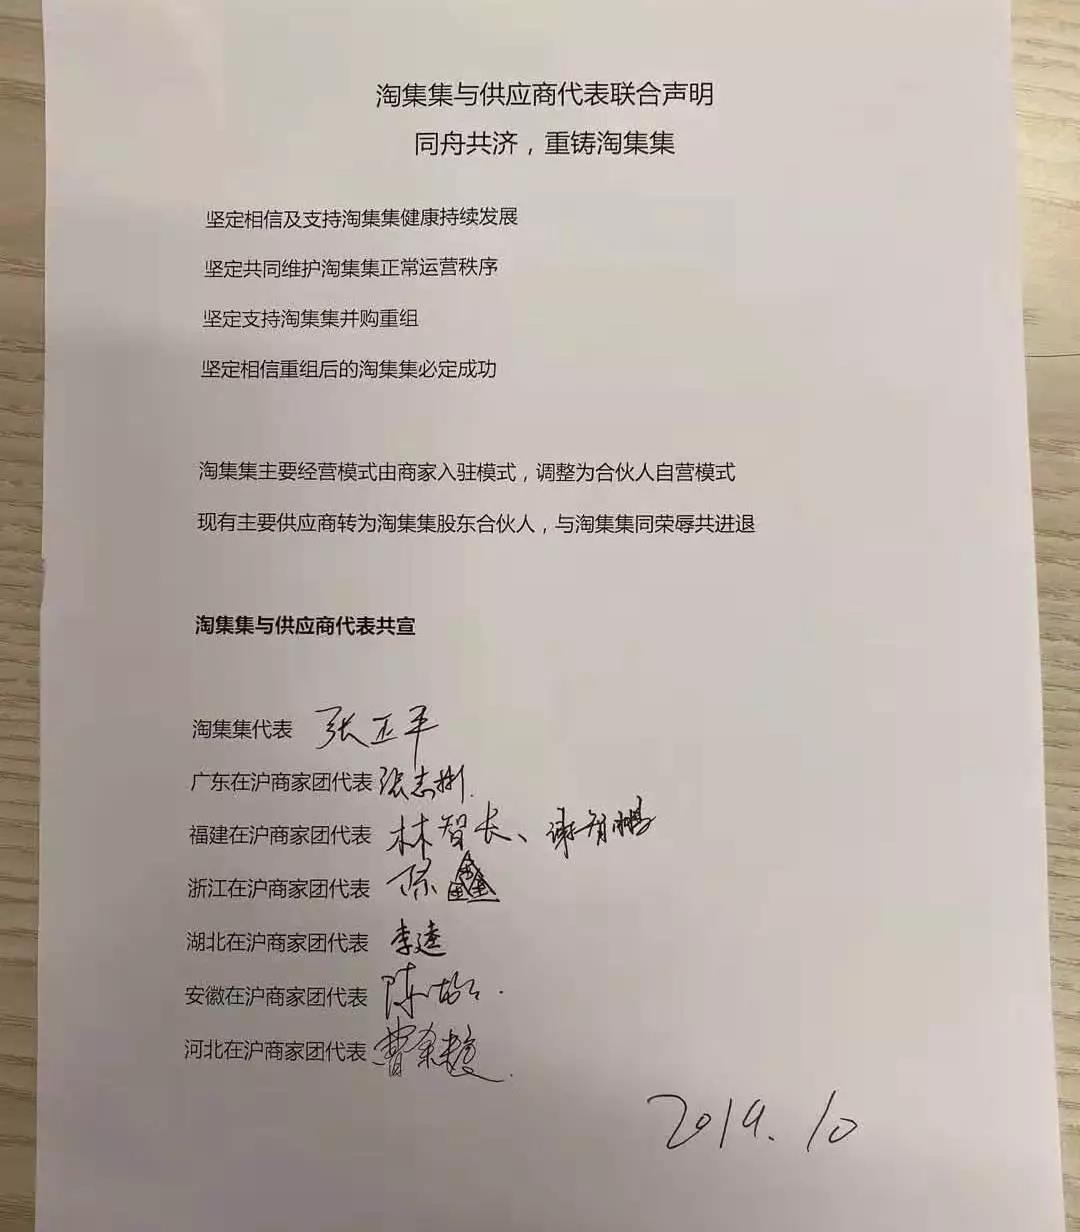 淘集集与供应商代表联合声明
同舟共济，重铸淘集集
坚定相信及支持淘集集健康持续发展
坚定共同维护淘集集正常运营秩序
坚定支持淘集集并购重组
坚定相信重组后的淘集集必定成功
淘集集主要经营模式由商家入驻模式，调整为合伙人自营模式
现有主要供应商转为淘集集股东合伙人，与淘集集同荣辱共进退
淘集集与供应商代表共宣
淘集集代表 张正平
广东在沪商家团代表 张志彬
福建在沪商家团代表 林智长、谢智鹏
浙江在沪商家团代表 鑫
湖北在沪商家团代表 李
安徽在沪商家团代表 陈
河北在沪商家团代表 曹
2019.10